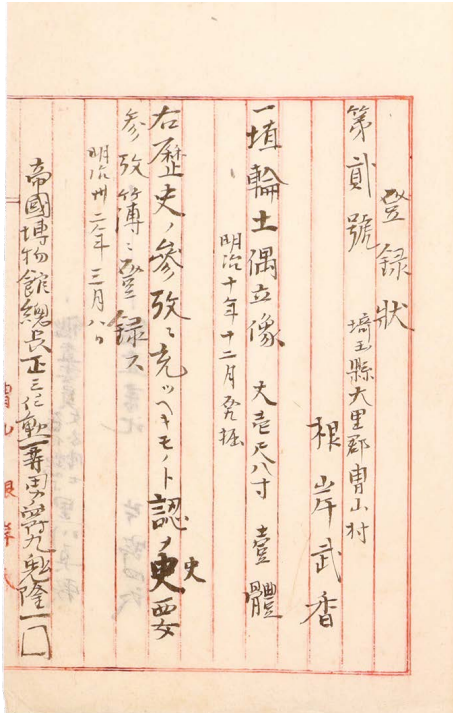 登録状
第貳號
埼玉縣大里郡冑山村
根岸武香
一埴輪土偶立像 丈壱尺八寸 壹體
明治十年十二月発掘
右歴史ノ参攷ニ充ツヘキモノト認メ史要
史
参攷簿ニ登録ス
明治卅二年三月八日
帝國博物館總長正三位勲一等男爵九鬼隆一